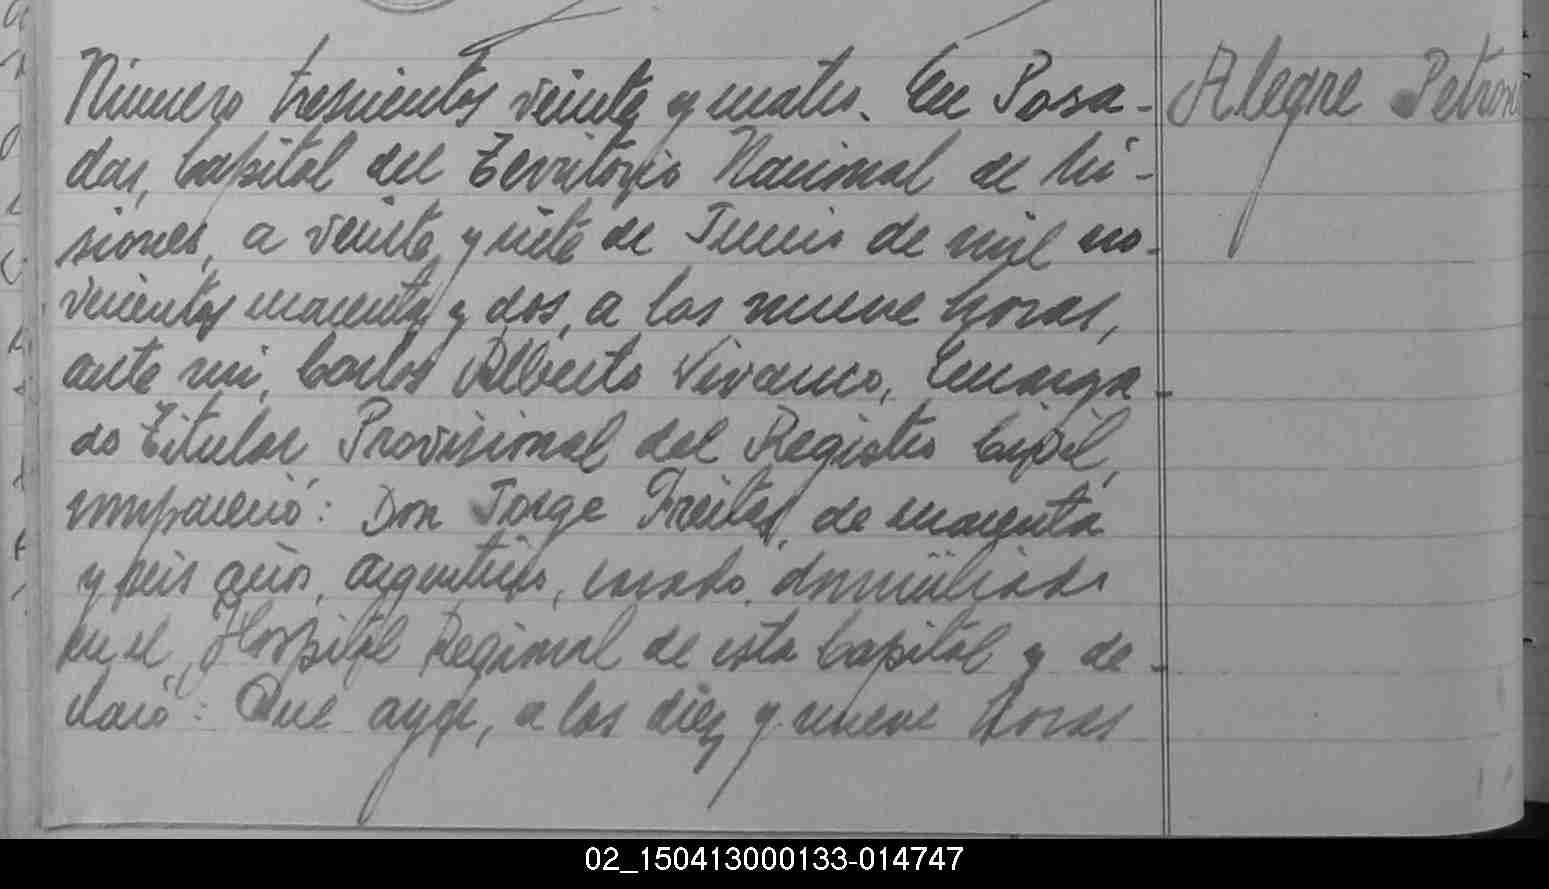 Número trescientos veinte y cuatro. En Posa-
das, Capital del Territorio Nacional de Mi-
siones, a veinte y siete de Junio de mil no-
vecientos cuarenta y dos, a las nueve horas,
ante mi, Carlos Alberto Vivanco, Encarga-
do Titular Provisional del Registro Civil,
compareció: Don Jorge Freites, de cuarenta
y seis años, argentino, casado, domiciliado
en el Hospital Regional de esta Capital y de-
claró: Que ayer, a las diez y nueve horas
Alegre Petron
02_150413000133-014747